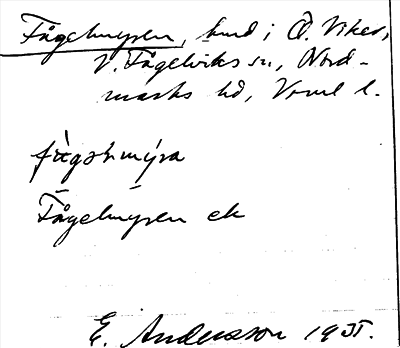 Fågelmyren, hmd i Ö. Viker,
V. Fågelviks sn, Nord-
marks hd, Vrml l.
Fågelmyren ek
E. Andersson 1935.